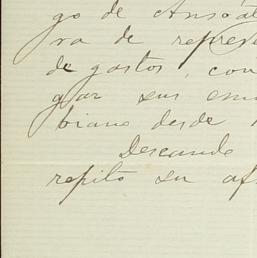 go de Ansoát
ra de represe
de gastos, con
glar sus emi
biano desde
Deseando
repito su af